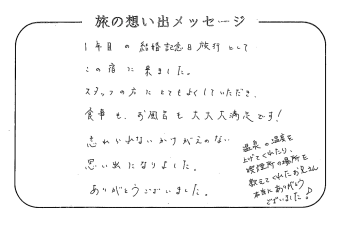 旅の想い出メッセージ
1年目の結婚記念日旅行として
この宿に来ました。
スタッフの方にとてもよくしていただき、
食事も、お風呂も大大大満足です！
忘れられないかけがえのない
思い出になりました。
ありがとうございました。
温泉の温度を
上げてくれたり、
喫煙所の場所を
教えてくれたお兄さん
本当にありがとう
ございました♪